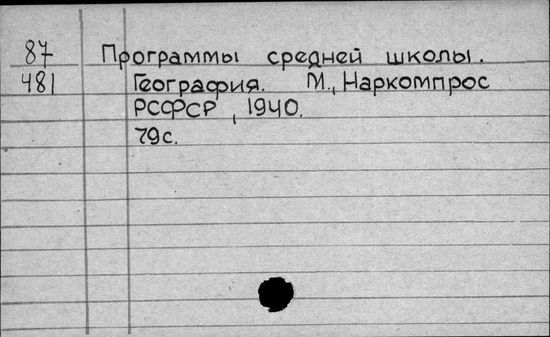 87 Программы средней школы.
481 География. М., Наркомпрос
РСФСР, 1940.
79с.